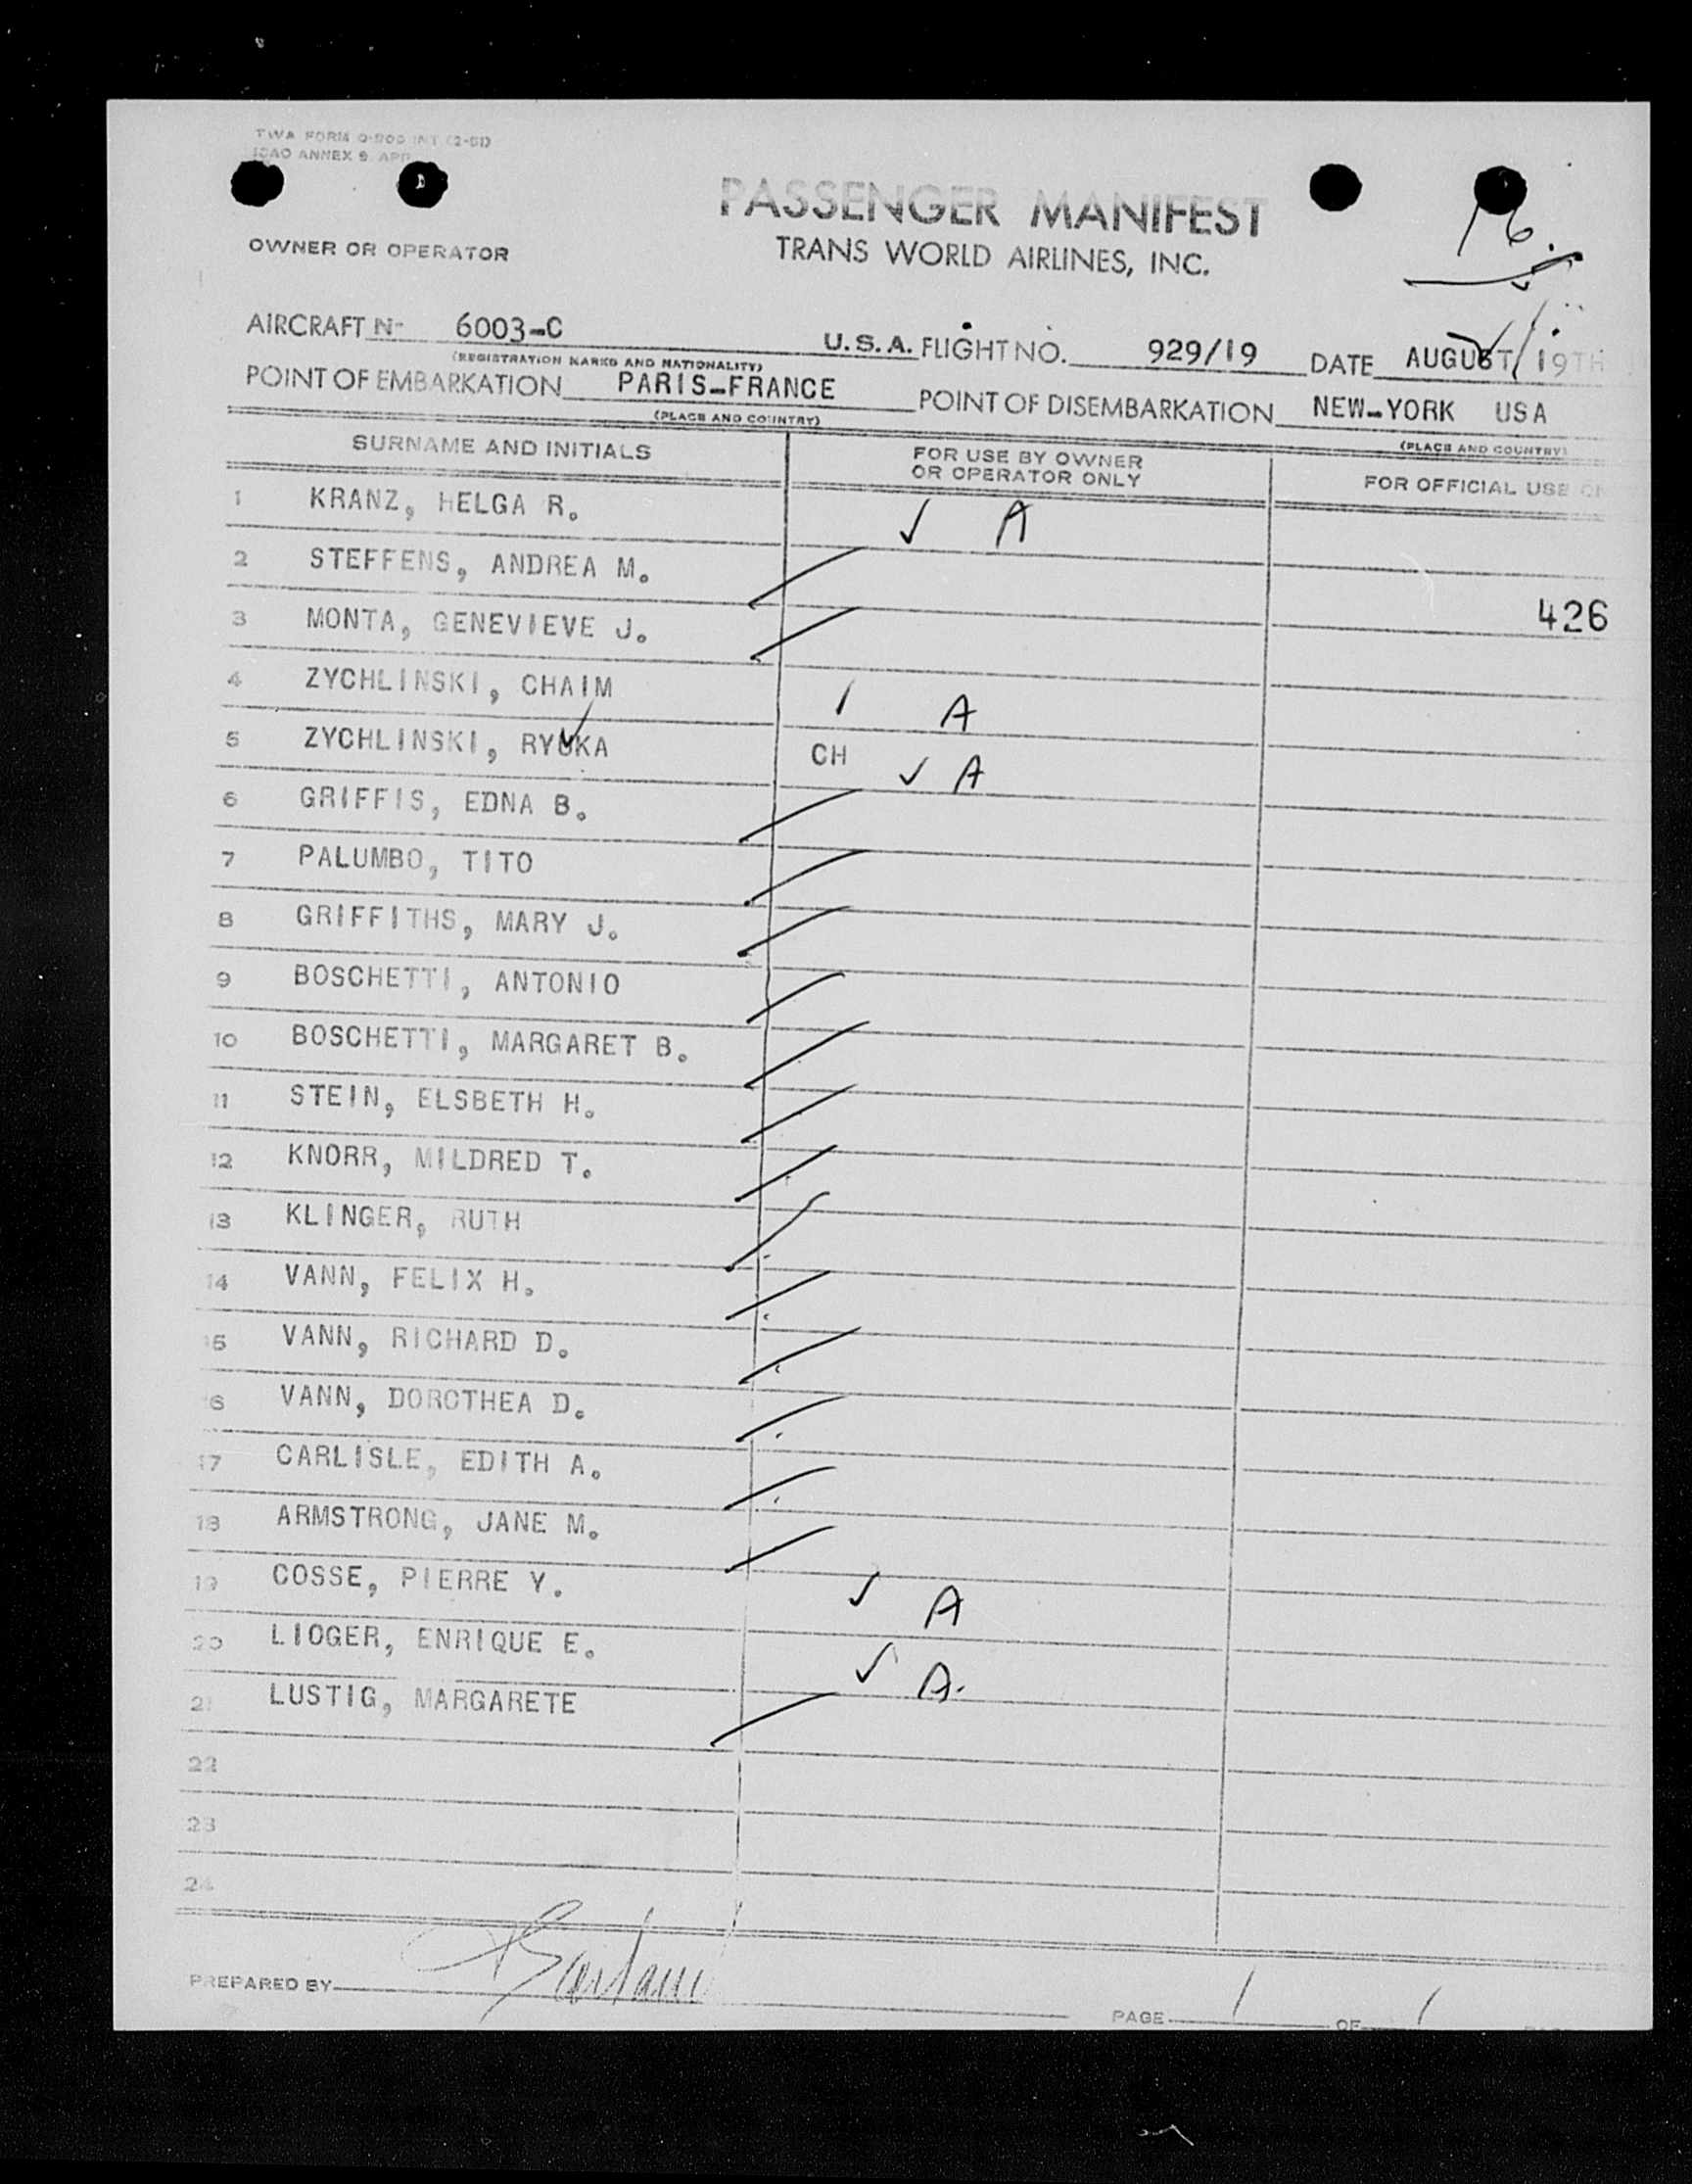 TWA FORM O-900 INT (2-51)
ICAO ANNEX 9 APP
PASSENGER MANIFEST
16.
OWNER OR OPERATOR TRANS WORLD AIRLINES, INC.
AIRCRAFT N- 6003-C U.S.A. FLIGHT NO. 929/19 DATE AUGUST/19TH
(REGISTRATION MARKS AND NATIONALITY)
POINT OF EMBARKATION PARIS-FRANCE POINT OF DISEMBARKATION NEW-YORK USA
(PLACE AND COUNTRY) (PLACE AND COUNTRY)
SURNAME AND INITIALS FOR USE BY OWNER OR OPERATOR ONLY FOR OFFICIAL USE
1 KRANZ, HELGA R. ✓ A
2 STEFFENS, ANDREA M.
3 MONTA, GENEVIEVE J. 426
4 ZYCHLINSKI, CHAIM / A
5 ZYCHLINSKI, CH ✓ A
6 GRIFFIS, EDNA B.
7 PALUMBO, TITO
8 GRIFFITHS, MARY J.
9 BOSCHETTI, ANTONIO
10 BOSCHETTI, MARGARET B.
11 STEIN, ELSBETH H.
12 KNORR, MILDRED T.
13 KLINGER, RUTH
14 VANN, FELIX H.
15 VANN, RICHARD D.
16 VANN, DOROTHEA D.
17 CARLISLE, EDITH A.
18 ARMSTRONG, JANE M.
19 COSSE, PIERRE Y. ✓ A
20 LIOGER, ENRIQUE E. ✓ A.
21 LUSTIG, MARGARETE
22
23
24
PREPARED BY
PAGE 1 OF 1